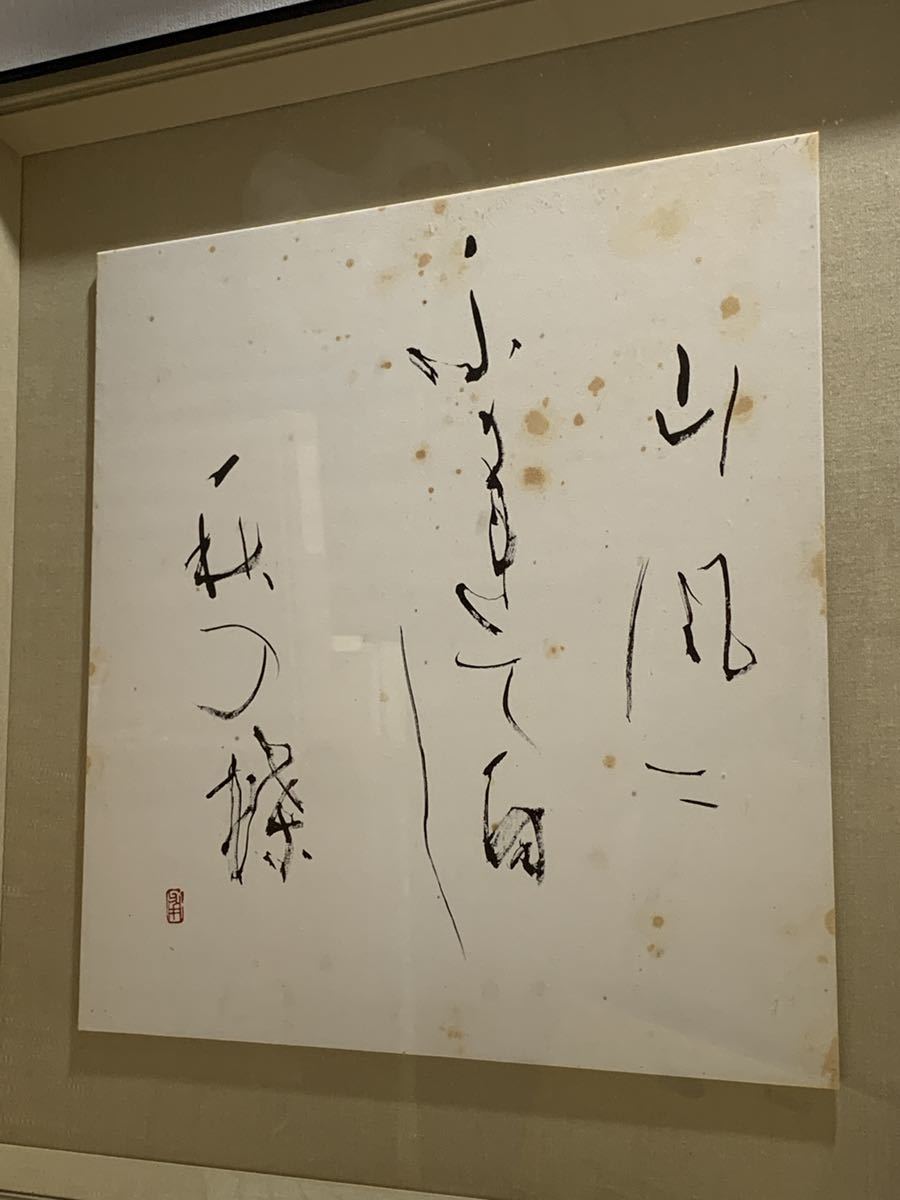 山風二
ふかれて白し
秋の蝶